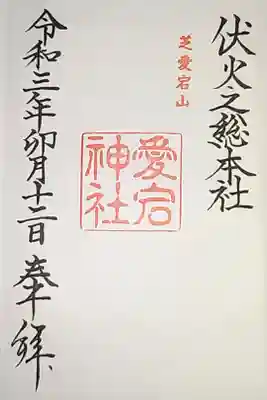 伏火之総本社
芝愛宕山
愛宕神社
令和三年卯月十二日 奉拝